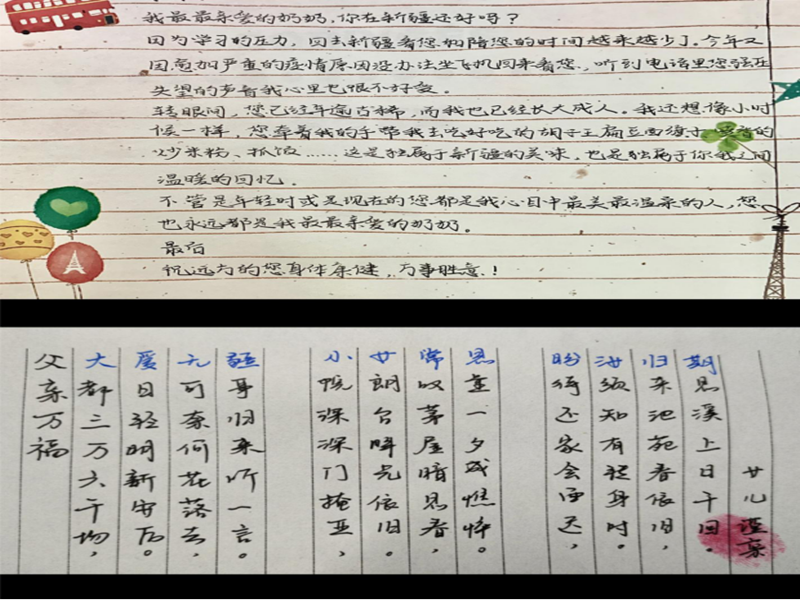 我最最亲爱的奶奶，你在新疆还好吗？
因为学习的压力，回去新疆看您和陪您的时间越来越少了。今年又
因愈加严重的疫情原因没办法坐飞机回来看您，听到电话里您强压
失望的声音我心里也很不好受。
转眼间，您已经年逾古稀，而我也已经长大成人。我还想像小时
候一样，您牵着我的手带我去吃好吃的胡子王扁豆面旗子 的
炒米粉、抓饭……这是独属于新疆的美味，也是独属于你我之间
温暖的回忆。
不管是年轻时或是现在的您都是我心目中最美最温柔的人，您
也永远都是我最最亲爱的奶奶。
最后
祝远方的您身体康健，万事胜意！
父亲万福
大都三万六千场，
夏日轻明新雨后。
无可奈何花落去，
疆身归来听一言。
小院深深门掩亚，
女郎台畔光依旧。
常叹茅屋暗思看，
思量一夕成憔悴。
盼待还家会面迟，
汝须知有 身时。
归来池苑看依旧，
期思溪上日千回。
女儿谨禀